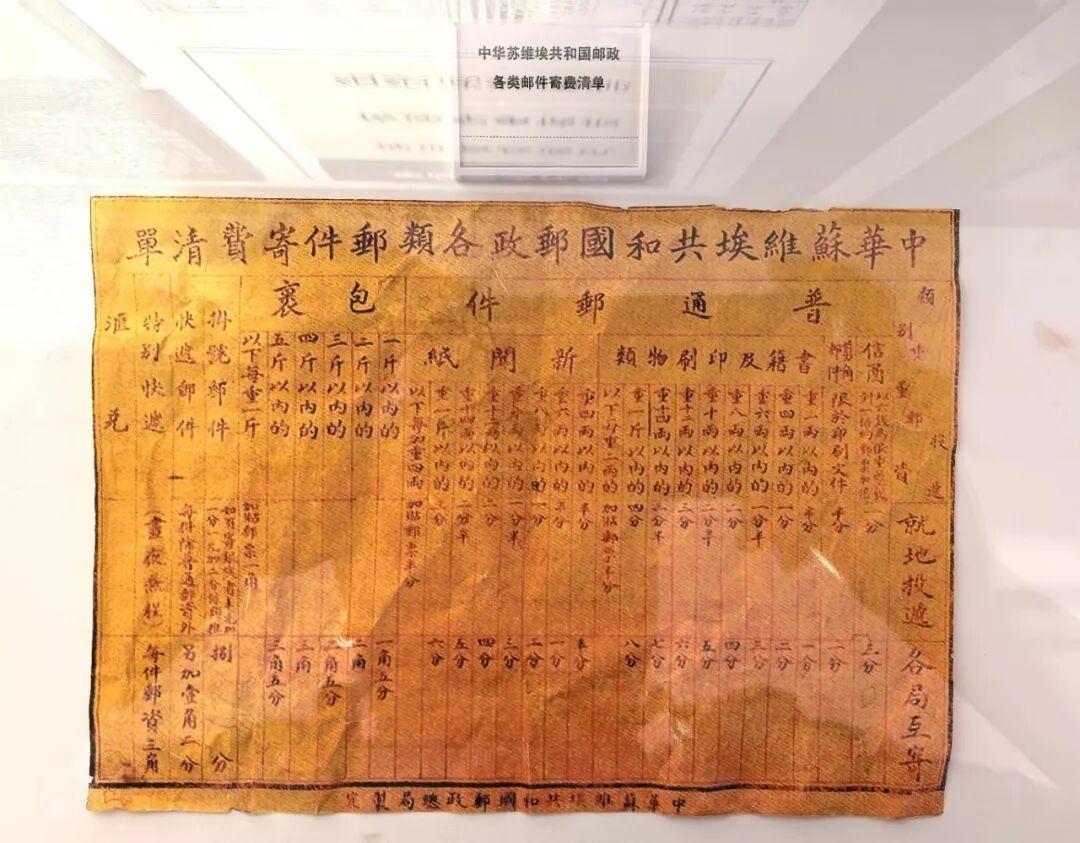 中华苏维埃共和国邮政
各类邮件寄费清单
中華蘇維埃共和國郵政各類郵件寄費清單
類別
重量
郵資
投遞
就地投遞
各局互寄
普通郵件
信函
一分
三分
剪角郵件
限於印刷文件
半分
一分
書籍及印刷物類
重二兩以內的
半分
一分
重四兩以內的
一分
二分
重六兩以內的
一分半
三分
重八兩以內的
二分
四分
重十兩以內的
二分半
五分
重十二兩以內的
三分
六分
重十四兩以內的
三分半
七分
重一斤以內的
四分
八分
以下每重二兩的
加貼郵票半分
新聞紙
重四兩以內的
半分
半分
重六兩以內的
半分
一分
重八兩以內的
一分
二分
一分半
三分
重十二兩以內的
二分
四分
重十四兩以內的
二分半
五分
重一斤以內的
三分
六分
以下每加重四兩
加貼郵票半分
包裹
一斤以內的
一角五分
二斤以內的
二角
三斤以內的
二角五分
四斤以內的
三角
五斤以內的
三角五分
以下每重一斤
加貼郵票一角
掛號郵件
捌分
快遞郵件
每件除普通郵資外另加壹角二分
特別快遞
（晝夜兼程）每件郵資三角
滙兌
中華蘇維埃共和國郵政總局製定